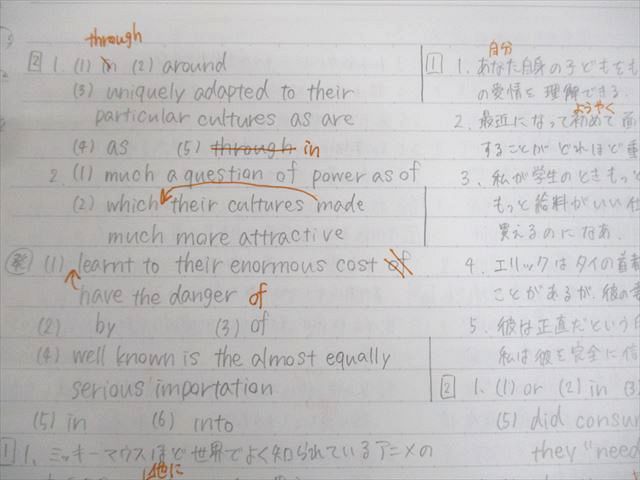 through
2 1. (1) in (2) around
(3) uniquely adapted to their
particular cultures as are
(4) as (5) through in
2. (1) much a question of power as of
(2) which their cultures made
much more attractive
発 (1) learnt to their enormous cost of
have the danger of
(2) by (3) of
(4) well known is the almost equally
serious importation
(5) in (6) into
1 1. ミッキーマウスほど世界でよく知られているアニメの
他に
自分
1 1. あなた自身の子どもをも
の愛情を理解できる.
ようやく
2. 最近になって初めて面
することがどれほど重
3. 私が学生のときもっと
もっと給料がいい仕
買えるのになあ.
4. エリックはタイの首都
ことがあるが、彼の
5. 彼は正直だという
私は彼を完全に信
2 1. (1) or (2) in (3)
(5) did consum
they "need